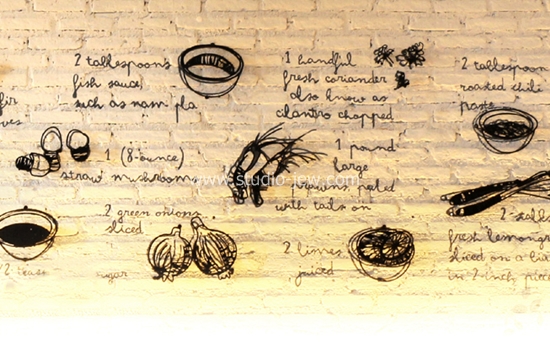 2 tablespoons
fish sauce
such as nam pla
1 handful
fresh coriander
also know as
cilantro chopped
2 tablespoon
roasted chili
paste
fir
ves
1 (8-ounce)
straw mushroom
1 pound
large
prawns
with tails on
www.studio-jew.com
2 green onions
sliced
2 limes
juiced
fresh lemongr
sliced on a
in 2-inch piec
sugar